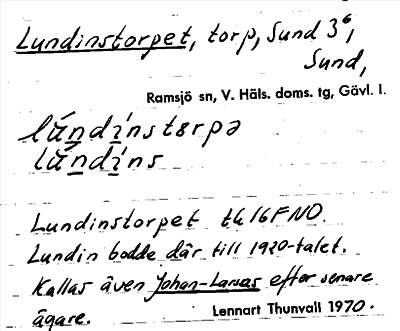 Lundinstorpet, torp, Sund 3⁶,
Sund,
Ramsjö sn, V. Häls. doms. tg, Gävl. l.
lúndínstɐrpə
lúndíns
Lundinstorpet tk 16FNO.
Lundin bodde där till 1920-talet.
Kallas även Johan-Larsas efter senare
ägare.
Lennart Thunvall 1970.